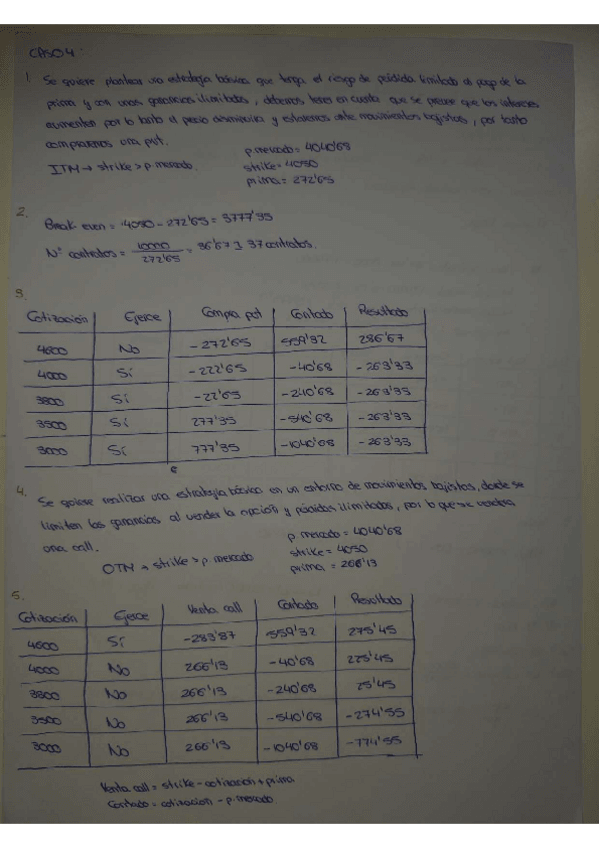 CASO 4:
1. Se quiere plantear una estrategia básica que tenga el riesgo de pérdida limitado al pago de la
prima y con unas ganancias ilimitadas, debemos tener en cuenta que se prevee que los intereses
aumenten por lo tanto el precio disminuirá y estaremos ante movimientos bajistas, por tanto
compraremos una put.
p.mercado = 4040'68
ITM → strike > p mercado.
strike = 4050
prima = 272'65
2.
Break even = 4050 - 272'65 = 3777'35
Nº contratos = 10000 / 272'65 = 36'67 ≃ 37 contratos.
3.
Cotización | Ejerce | Compra put | Contado | Resultado
4600 | No | -272'65 | 559'32 | 286'67
4000 | Sí | -222'65 | -40'68 | -263'33
3800 | Sí | -22'65 | -240'68 | -263'33
3500 | Sí | 277'35 | -540'68 | -263'33
3000 | Sí | 777'35 | -1040'68 | -263'33
4.
Se quiere realizar una estrategia básica en un entorno de movimientos bajistas, donde se
limiten las ganancias al vender la opción y pérdidas ilimitadas, por lo que se vendera
una call.
p mercado = 4040'68
OTM → strike > p mercado
strike = 4050
prima = 266'13
5.
Cotización | Ejerce | Venta call | Contado | Resultado
4600 | Sí | -283'87 | 559'32 | 275'45
4000 | No | 266'13 | -40'68 | 225'45
3800 | No | 266'13 | -240'68 | 25'45
3500 | No | 266'13 | -540'68 | -274'55
3000 | No | 266'13 | -1040'68 | -774'55
Venta call = strike - cotizacion + prima
Contado = cotizacion - p.mercado